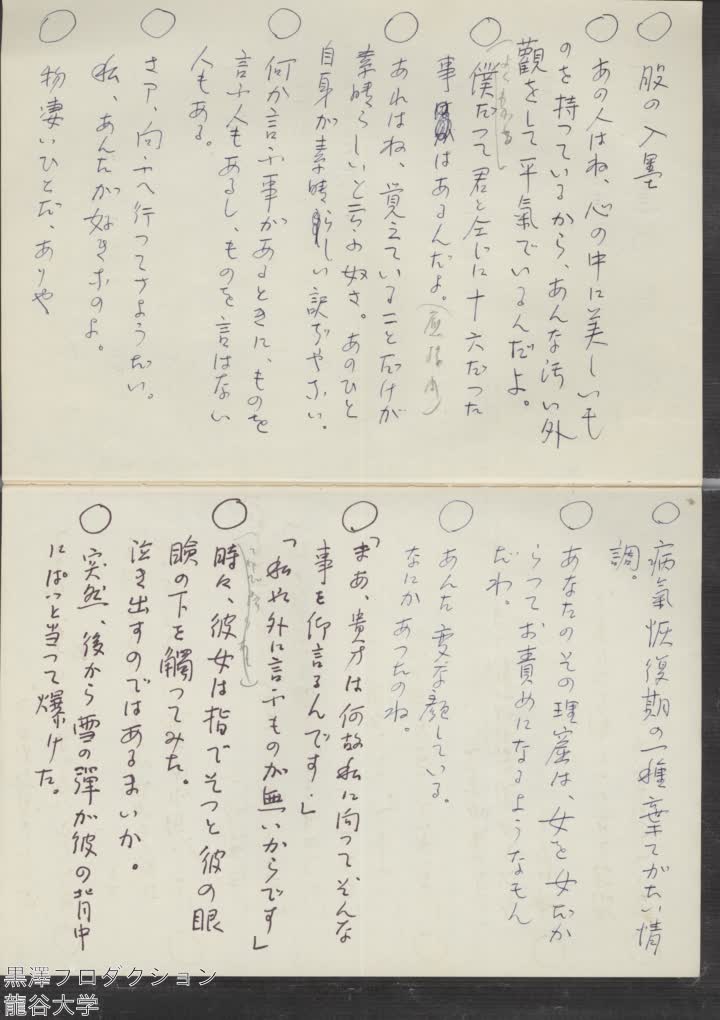 ○ 股の入墨
○ あの人はね、心の中に美しいも
のを持つているから、あんな汚い外
觀をして平氣でいるんだよ。
○ 僕だつて君と仝じに十六だつた
事はあるんだよ。
○ あれはね、覚えていることだけが
素晴らしいと言ふ奴さ。あのひと
自身が素晴らしい訳ぢやない。
○ 何か言ふ事があるときに、ものを
言ふ人もあるし、ものを言はない
人もある。
○ さア、向ふへ行つてさようだい。
私、あんたが好きなのよ。
○ 物凄いひとだ、ありや
○ 病氣恢復期の一種棄てがたい情
調。
○ あなたのその理窟は、女を女だか
らつてお責めになるようなもん
だわ。
○ あんた変な顔している。
なにかあつたのね。
○「まあ、貴方は何故私に向つてそんな
事を仰言るんです.」
「私や外に言ふものが無いからです」
○ 時々、彼女は指でそつと彼の眼
瞼の下を觸つてみた。
泣き出すのではあるまいか。
○ 突然、後から雪の彈が彼の背中
にぱつと当つて爆けた。
黒澤プロダクション
龍谷大学